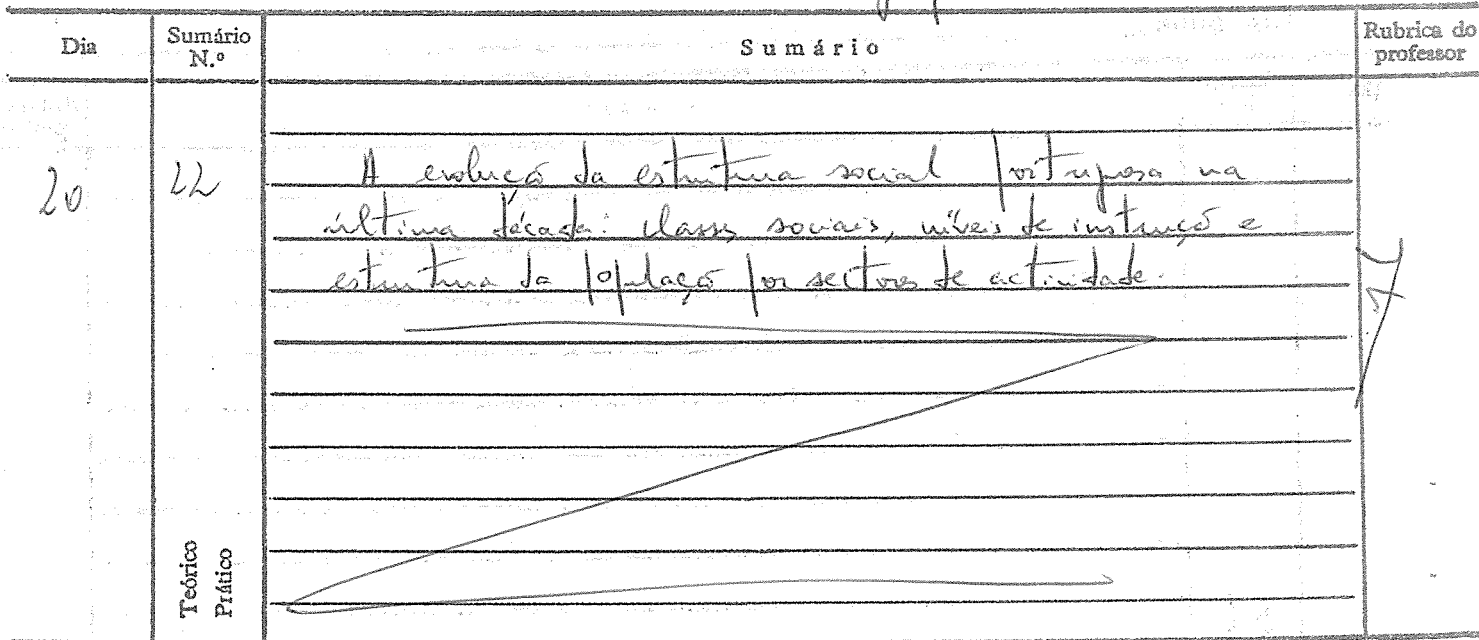 Dia
Sumário N.º
Sumário
Rubrica do professor
20
22
A evolução da estrutura social portuguesa na
última década: classes sociais, níveis de instrução e
estrutura da população por sectores de actividade.
Teórico
Prático